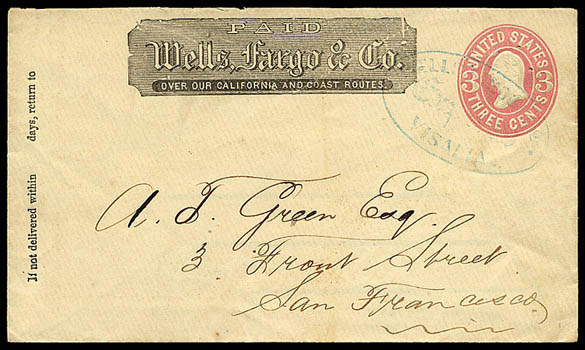 PAID
Wells, Fargo & Co.
OVER OUR CALIFORNIA AND COAST ROUTES.
UNITED STATES
3 3
THREE CENTS
WELLS
VISALIA
If not delivered within days, return to
A. T. Green Esq.
3 Front Street
San Francisco